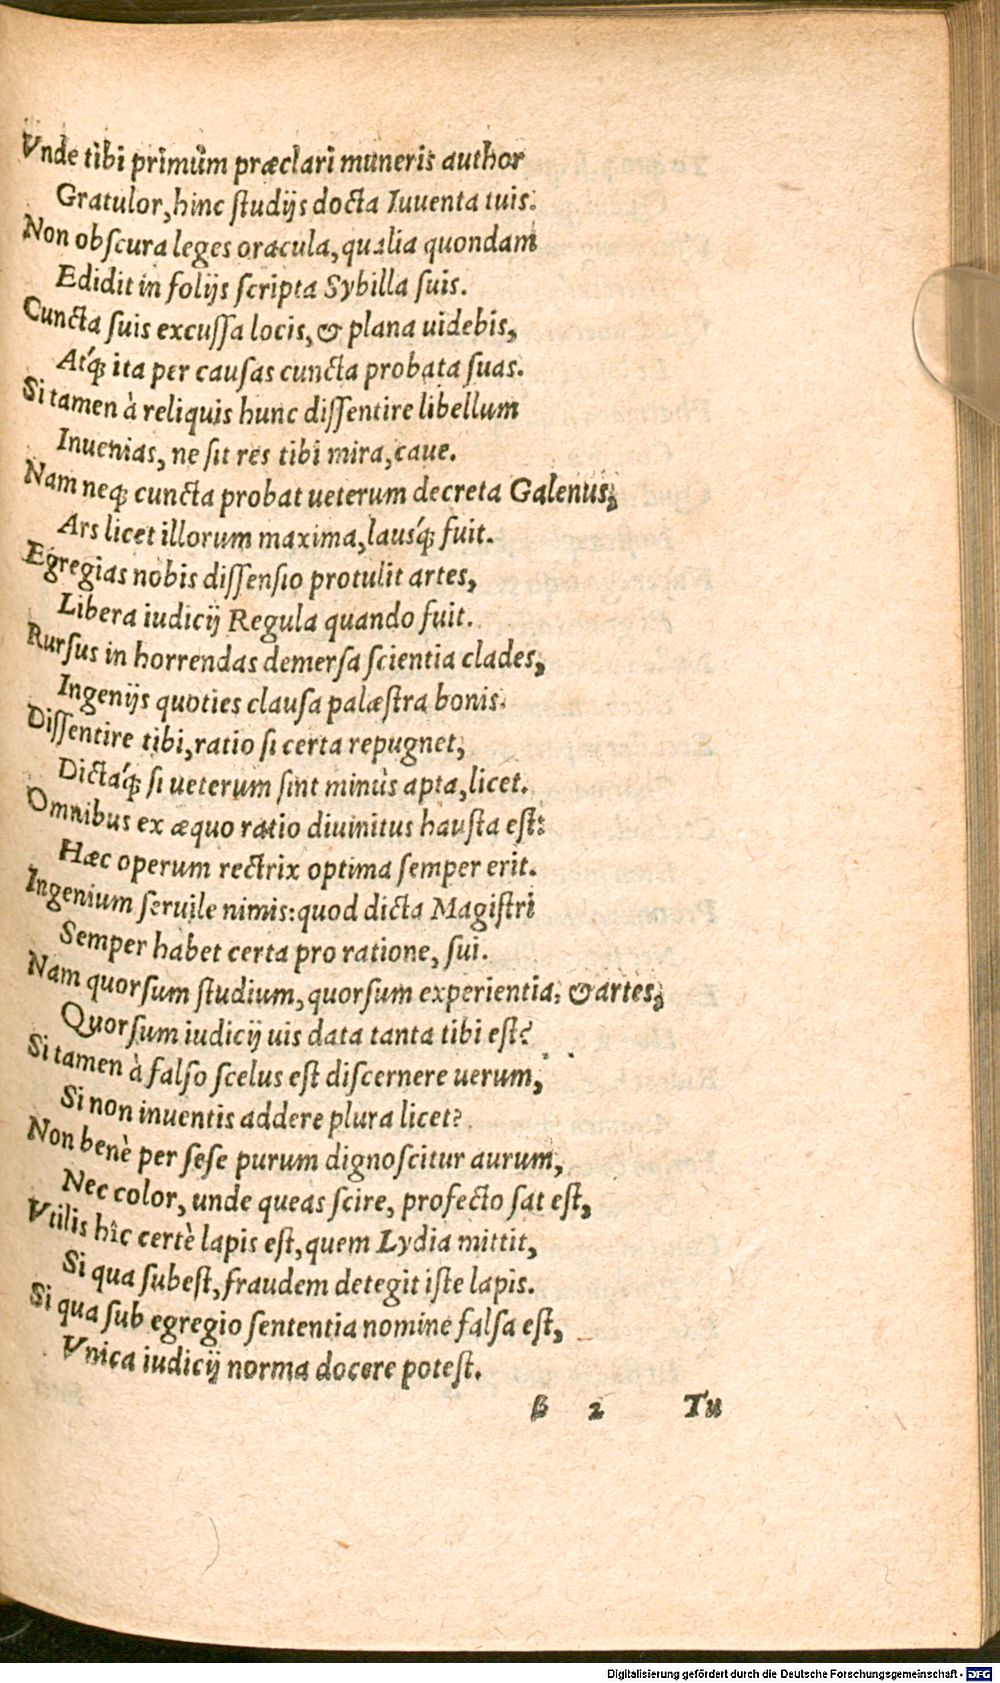 Vnde tibi primùm præclari muneris author
Gratulor, hinc ſtudijs docta Iuuenta tuis.
Non obſcura leges oracula, qualia quondam
Edidit in folijs ſcripta Sybilla ſuis.
Cuncta ſuis excuſſa locis, & plana uidebis,
Atq́; ita per cauſas cuncta probata ſuas.
Si tamen à reliquis hunc diſſentire libellum
Inuenias, ne ſit res tibi mira, caue.
Nam neq; cuncta probat ueterum decreta Galenus;
Ars licet illorum maxima, lausq́; fuit.
Egregias nobis diſſenſio protulit artes,
Libera iudicij Regula quando fuit.
Rurſus in horrendas demerſa ſcientia clades,
Ingenijs quoties clauſa palæſtra bonis.
Diſſentire tibi, ratio ſi certa repugnet,
Dictaq́; ſi ueterum ſint minùs apta, licet.
Omnibus ex æquo ratio diuinitus hauſta eſt:
Hæc operum rectrix optima ſemper erit.
Ingenium ſeruile nimis: quod dicta Magiſtri
Semper habet certa pro ratione, ſui.
Nam quorſum ſtudium, quorſum experientia, & artes,
Quorſum iudicij uis data tanta tibi eſt?
Si tamen à falſo ſcelus eſt diſcernere uerum,
Si non inuentis addere plura licet?
Non benè per ſeſe purum dignoſcitur aurum,
Nec color, unde queas ſcire, profecto ſat eſt,
Vtilis hîc certè lapis eſt, quem Lydia mittit,
Si qua ſubeſt, fraudem detegit iſte lapis.
Si qua ſub egregio ſententia nomine falſa eſt,
Vnica iudicij norma docere poteſt.
B 2 Tu
Digitalisierung gefördert durch die Deutsche Forschungsgemeinschaft - DFG